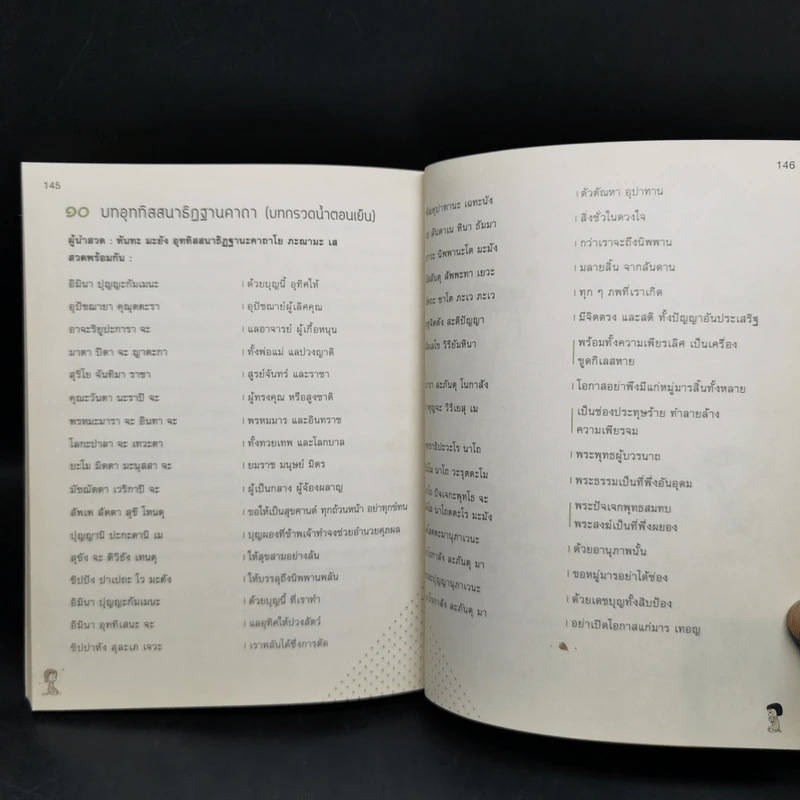 145
๑๐ บทอุททิสสนาธิฏฐานคาถา (บทกรวดน้ำตอนเย็น)
ผู้นำสวด : หันทะ มะยัง อุททิสสนาธิฏฐานะคาถาโย ภะณามะ เส
สวดพร้อมกัน :
อิมินา ปุญญะกัมเมนะ | ด้วยบุญนี้ อุทิศให้
อุปัชฌายา คุณุตตะรา | อุปัชฌาย์ผู้เลิศคุณ
อาจะริยูปะการา จะ | แลอาจารย์ ผู้เกื้อหนุน
มาตา ปิตา จะ ญาตะกา | ทั้งพ่อแม่ แลปวงญาติ
สุริโย จันทิมา ราชา | สูรย์จันทร์ และราชา
คุณะวันตา นะราปิ จะ | ผู้ทรงคุณ หรือสูงชาติ
พรหมะมารา จะ อินทา จะ | พรหมมาร และอินทราช
โลกะปาลา จะ เทวะตา | ทั้งทวยเทพ และโลกบาล
ยะโม มิตตา มะนุสสา จะ | ยมราช มนุษย์ มิตร
มัชฌัตตา เวริกาปิ จะ | ผู้เป็นกลาง ผู้จ้องผลาญ
สัพเพ สัตตา สุขี โหนตุ | ขอให้เป็นสุขศานติ์ ทุกถ้วนหน้า อย่าทุกข์ทน
ปุญญานิ ปะกะตานิ เม | บุญผองที่ข้าพเจ้าทำจงช่วยอำนวยศุภผล
สุขัง จะ ติวิธัง เทนตุ | ให้สุขสามอย่างล้น
ขิปปัง ปาเปถะ โว มะตัง | ให้บรรลุถึงนิพพานพลัน
อิมินา ปุญญะกัมเมนะ | ด้วยบุญนี้ ที่เราทำ
อิมินา อุททิเสนะ จะ | แลอุทิศให้ปวงสัตว์
ขิปปาหัง สุละเภ เจวะ | เราพลันได้ซึ่งการตัด
146
ปาทานะ เฉทะนัง | ตัวตัณหา อุปาทาน
สันตาเน หินา ธัมมา | สิ่งชั่วในดวงใจ
นิพพานะโต มะมัง | กว่าเราจะถึงนิพพาน
สัพพะทา เยวะ | มลายสิ้น จากสันดาน
ชาโต ภะเว ภะเว | ทุก ๆ ภพที่เราเกิด
สะติปัญญา | มีจิตตรง และสติ ทั้งปัญญาอันประเสริฐ
วิริยัมหินา | พร้อมทั้งความเพียรเลิศ เป็นเครื่อง
ขูดกิเลสหาย
ละภันตุ โนกาสัง | โอกาสอย่าพึงมีแก่หมู่มารสิ้นทั้งหลาย
วิริเยสุ เม | เป็นช่องประทุษร้าย ทำลายล้าง
ความเพียรจม
นาโถ | พระพุทธผู้บวรนาถ
นาโถ วะรุตตะโม | พระธรรมเป็นที่พึ่งอันอุดม
ปัจเจกะพุทโธ จะ | พระปัจเจกพุทธสมทบ
นาโถตตะโร มะมัง | พระสงฆ์เป็นที่พึ่งผยอง
มานุภาเวนะ | ด้วยอานุภาพนั้น
ละภันตุ มา | ขอหมู่มารอย่าได้ช่อง
ปุญญานุภาเวนะ | ด้วยเดชบุญทั้งสิบป้อง
ละภันตุ มา | อย่าเปิดโอกาสแก่มาร เทอญ